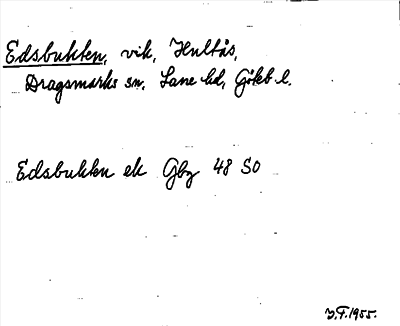 Edsbukten, vik, Hultås,
Dragsmarks sn, Lane hd, Göteb l.
Edsbukten ek Gbg 48 SO
J.F. 1955.